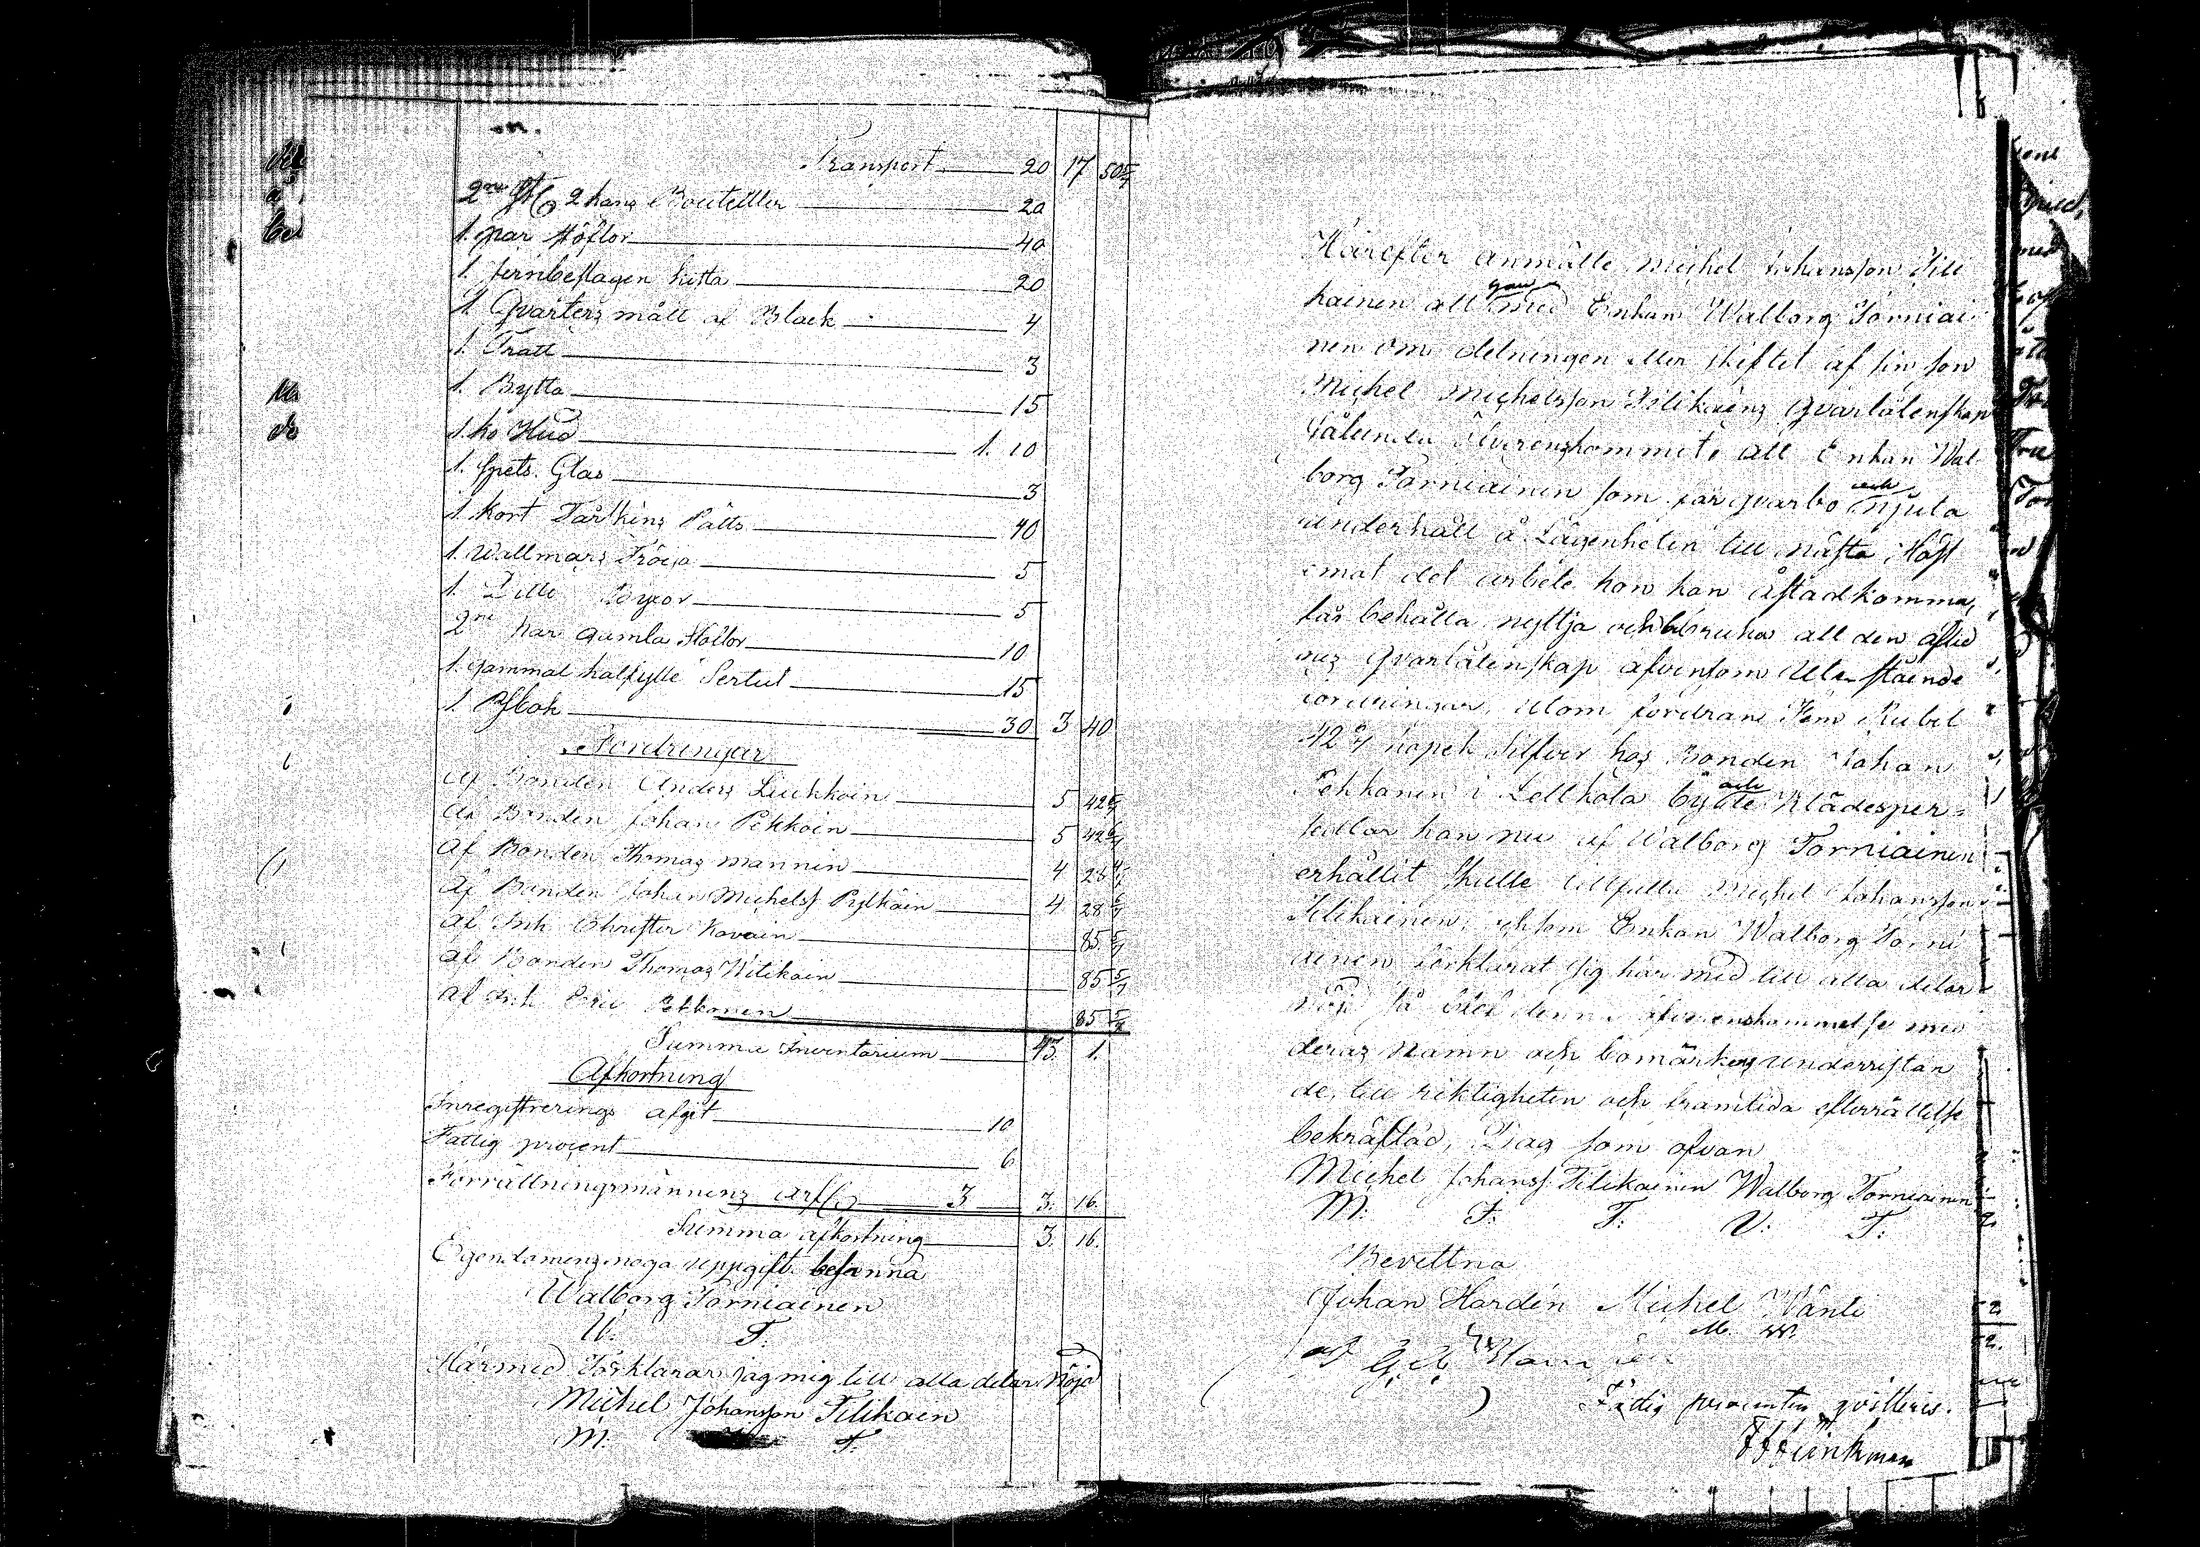 Transport 20 17 50 5/7
2ne st 2 kans Bouteiller 20
1. par Stöflor 40
1. jernbeslagen kista 20
1 Qvarters mått af Bläck 4
1. Tratt 3
1. Bytta 15
1. ko Hud 1. 10
1. spets Glas 3
1. kort Fårskins Päls 40
1. Wallmars Tröija 5
1. Ditto Byxor 5
2ne par gamla Stöflor 10
1. gammal halfylle Sertut 15
1. Ps.bok 30 3 40
Fordringar
Af Bonden Anders Liukkoin 5 42 6/7
Af Bonden Johan Pekkoin 5 42 6/7
Af Bonden Thomas Mannin 4 28 4/7
Af Bonden Johan Michelss Pylkäin 4 28 4/7
Af Inh Christer Kovain 85 5/7
Af Bonden Thomas Hitikain 85 5/7
Af Inh Pekkonen 85 5/7
Summa Inventarium 45. 1.
Afkortning
Inregistrerings afgift 10
Fattig procent 6
Förrättningsmännens arf 3 3. 16.
Summa afkortning 3. 16.
Egendomens noga uppgift besanna
Walborg Torniainen
V. T.
Härmed Förklarar jag mig till alla delar Nöjd
Michel Johansson Tilikain
M. T.
Härefter anmälte Michel Johansson Tili
kainen att med Enkan Walborg Torniai
nen om delningen eller skiftet af sin son
Michel Michelsson Tilikains qvarlåtenskap
Sålunda Öfverenskommit, att Enkan Wal
borg Torniainen som får qvarbo och njuta
underhåll å Lägenheten till nästa Höst
emot det arbete hon kan åstadkomma,
får behålla, nyttja och bruka all den aflid
nes qvarlåtenskap äfvensom Utestående
fordringar, utom fordran Fem Rubel
42 6/7 kopek Silfver hos Bonden Johan
Pekkanen i Lellkola by och Klädesper
sedlar han nu af Walborg Torniainen
erhållit skulle tillfalla Michel Johansson
Tilikainen; och som Enkan Walborg Torni
ainen förklarat sig här med till alla delar
nöjd Så blef denna öfverenskommelse med
deras Namn och bomärkes underristan
de, till riktigheten och framtida efterrättelse
bekräftad, Dag som ofvan
Michel Johanss. Tilikainen Walborg Torniainen
M. J. T. V. T.
Bevittna
Johan Hardén Michel Wänti
M. W.
Fattig procenten qvitteras.